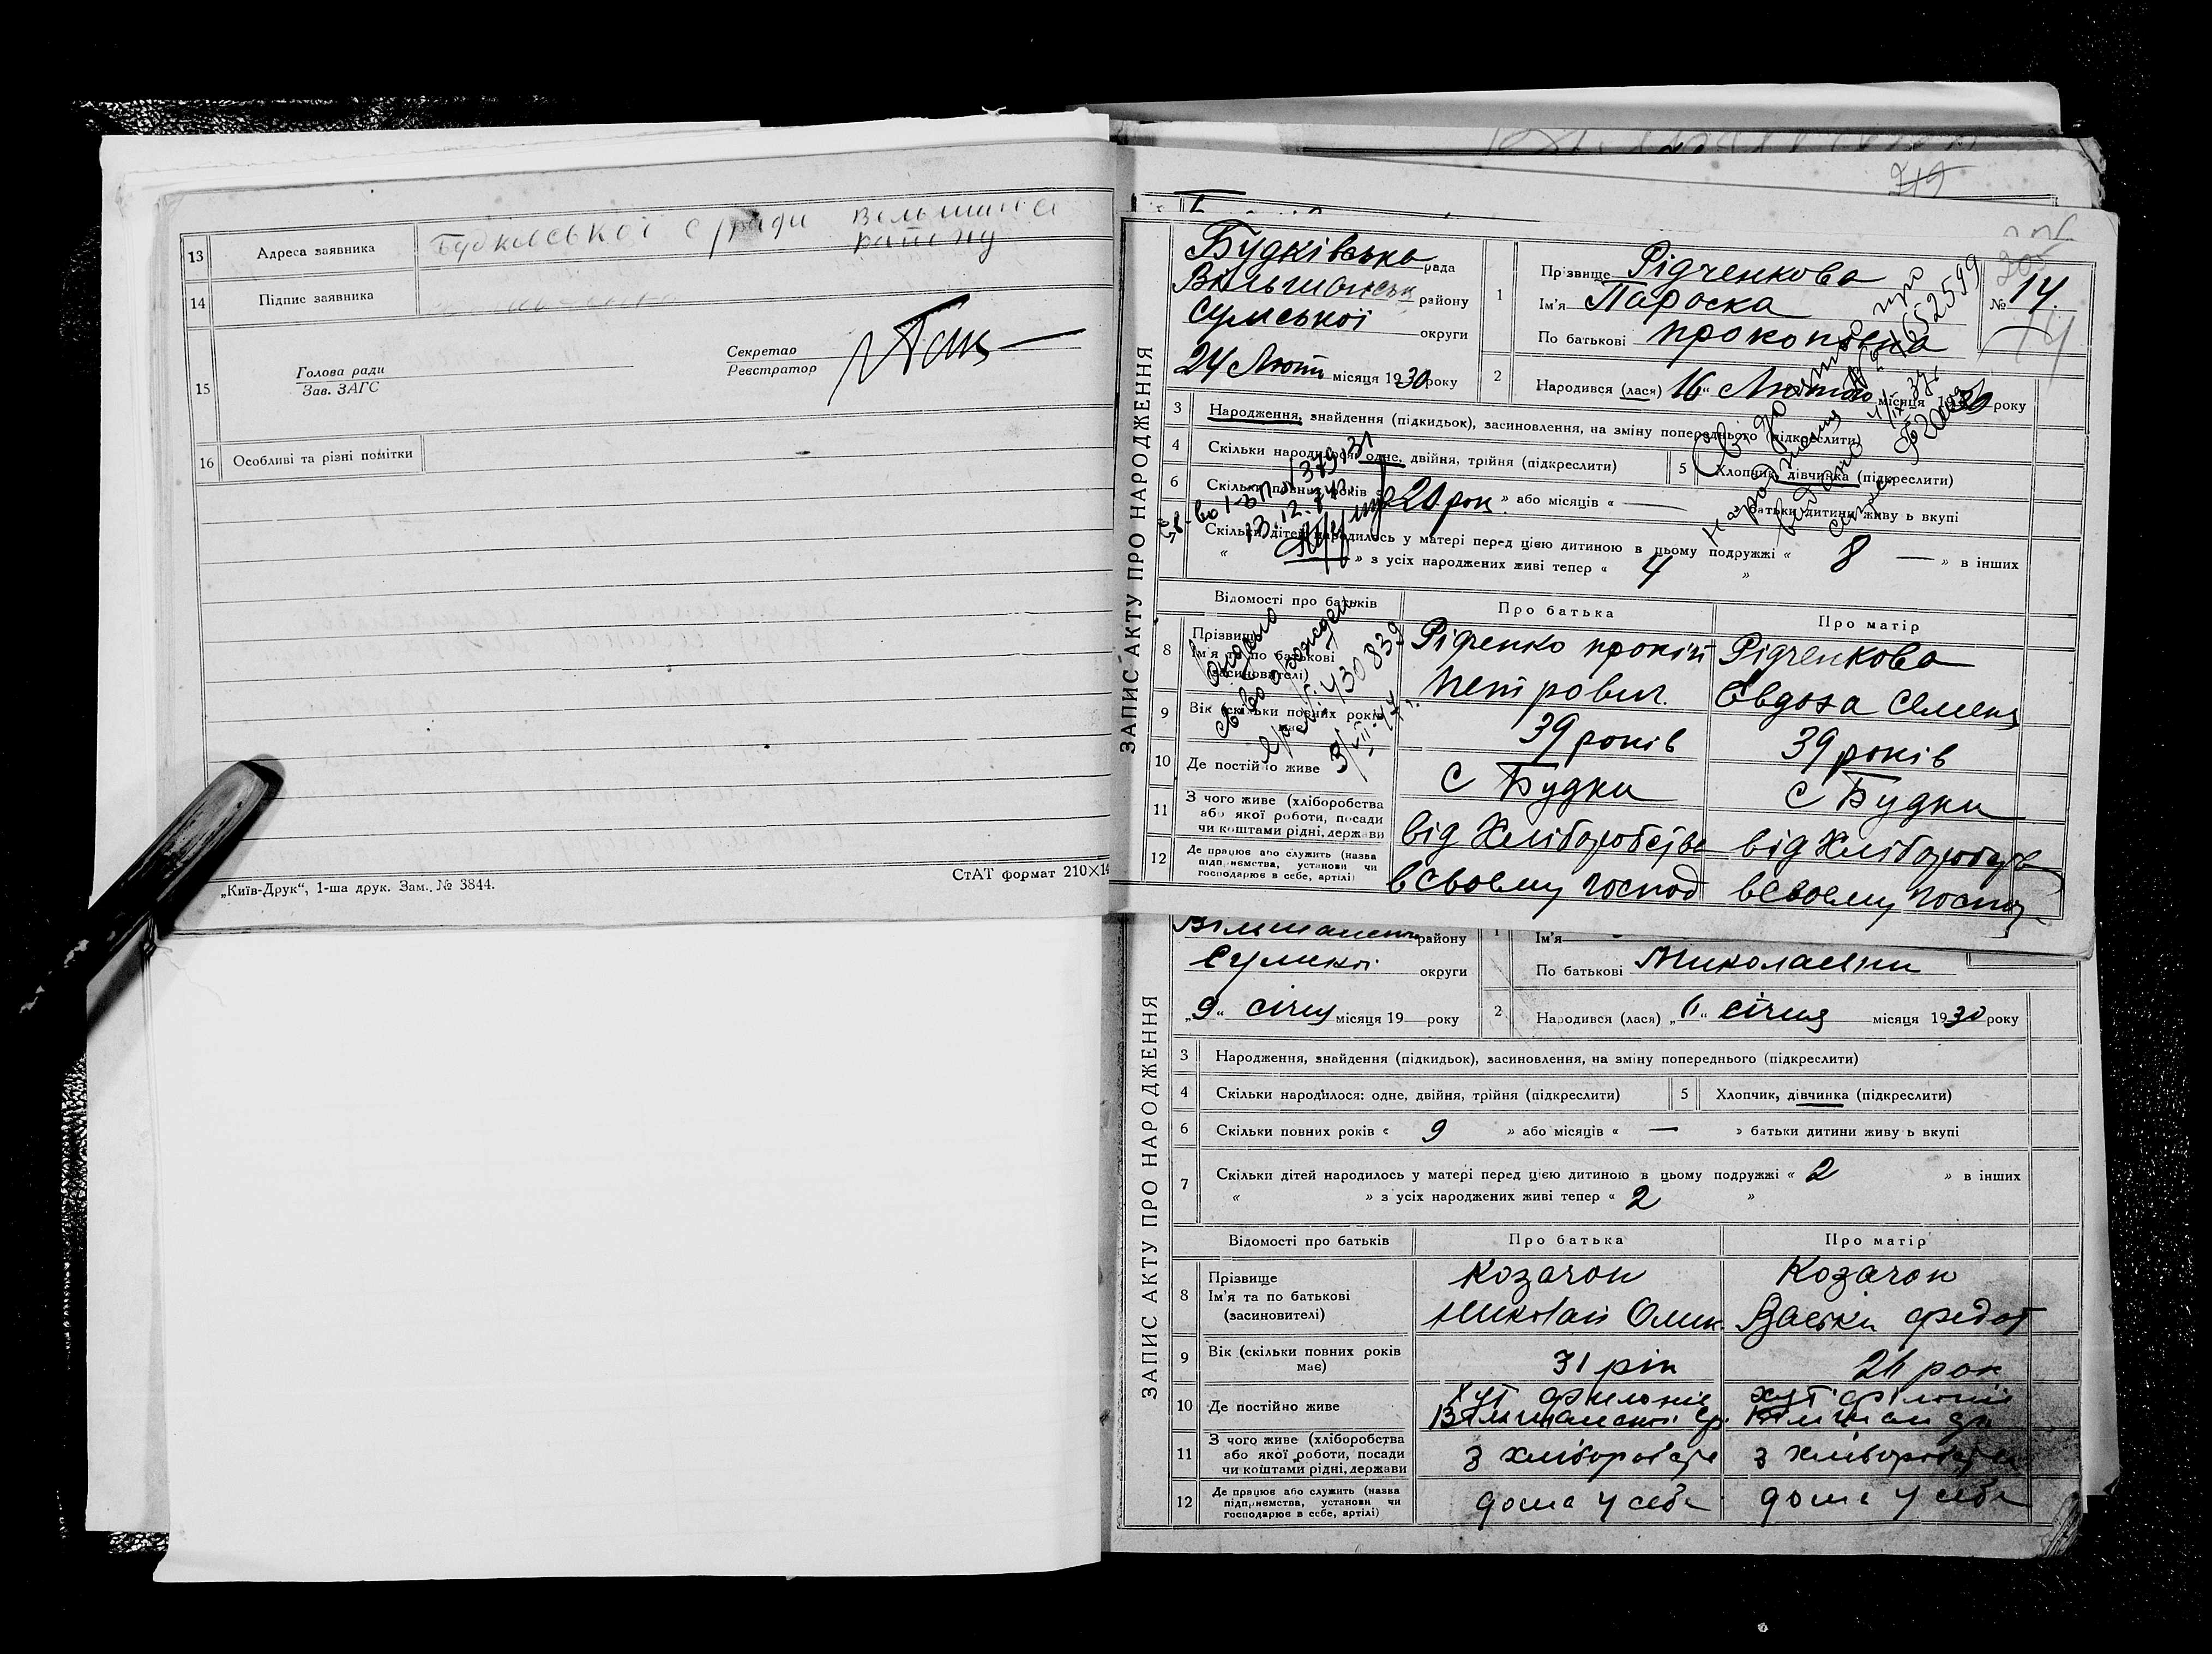 13 Адреса заявника Будківської с/ради Вільшансь
району
14 Підпис заявника
15 Голова ради
Зав. ЗАГС
Секретар
Реєстратор
16 Особливі та різні помітки
„Київ-Друк“, 1-ша друк. Зам. № 3844.
СтАТ формат 210×14
719
ЗАПИС АКТУ ПРО НАРОДЖЕННЯ
Будківська рада
Вільшанськ району
Сумської округи
24 Лютн місяця 1930 року
1 Прізвище Рідченкова
Ім'я Пароска
По батькові Прокопівна
№ 14.
14
2 Народився (лася) „16“ Лютого місяця 1930 року
3 Народження, знайдення (підкидьок), засиновлення, на зміну попереднього (підкреслити)
4 Скільки народилося: одне, двійня, трійня (підкреслити)
5 Хлопчик, дівчинка (підкреслити)
6 Скільки повних років « 20 рок » або місяців « — » батьки дитини живу ь вкупі
Скільки дітей народилось у матері перед цією дитиною в цьому подружжі « 8 — » в інших
« » з усіх народжених живі тепер « 4 »
Відомості про батьків
Про батька
Про матір
8 Прізвище
Ім'я та по батькові
(засиновителі)
Рідченко Прокіп
Петрович.
Рідченкова
Євдоха Семен
9 Вік (скільки повних років має)
39 років
39 років
10 Де постійно живе
С Будки
С Будки
11 З чого живе (хліборобства
або якої роботи, посади
чи коштами рідні, держави
від Хліборобства
від Хліборобств
12 Де працює або служить (назва
підприємства, установи чи
господарює в себе, артілі)
в своєму господ
в своєму госпо
Св. до про
народження № 652599
видано
видано
св-во о рожден
430839
3/VII-44 г.
13.12.
ЗАПИС АКТУ ПРО НАРОДЖЕННЯ
Вільшанськ району
Сумської округи
„9“ січня місяця 19 року
1 Ім'я
По батькові Миколаєвни
2 Народився (лася) „ “ січня місяця 1930 року
3 Народження, знайдення (підкидьок), засиновлення, на зміну попереднього (підкреслити)
4 Скільки народилося: одне, двійня, трійня (підкреслити)
5 Хлопчик, дівчинка (підкреслити)
6 Скільки повних років « 9 » або місяців « — » батьки дитини живу ь вкупі
7 Скільки дітей народилось у матері перед цією дитиною в цьому подружжі « 2 » в інших
« » з усіх народжених живі тепер « 2 »
Відомості про батьків
Про батька
Про матір
8 Прізвище
Ім'я та по батькові
(засиновителі)
Козачок
Николай Олик.
Козачок
Васьки Федот
9 Вік (скільки повних років
має)
31 рік
рок
10 Де постійно живе
хут Филонів
хут Філонів
11 З чого живе (хліборобства
або якої роботи, посади
чи коштами рідні, держави
З хлібороб
З хлібороб
12 Де працює або служить (назва
підприємства, установи чи
господарює в себе, артілі)
дома у себе
дома у себе